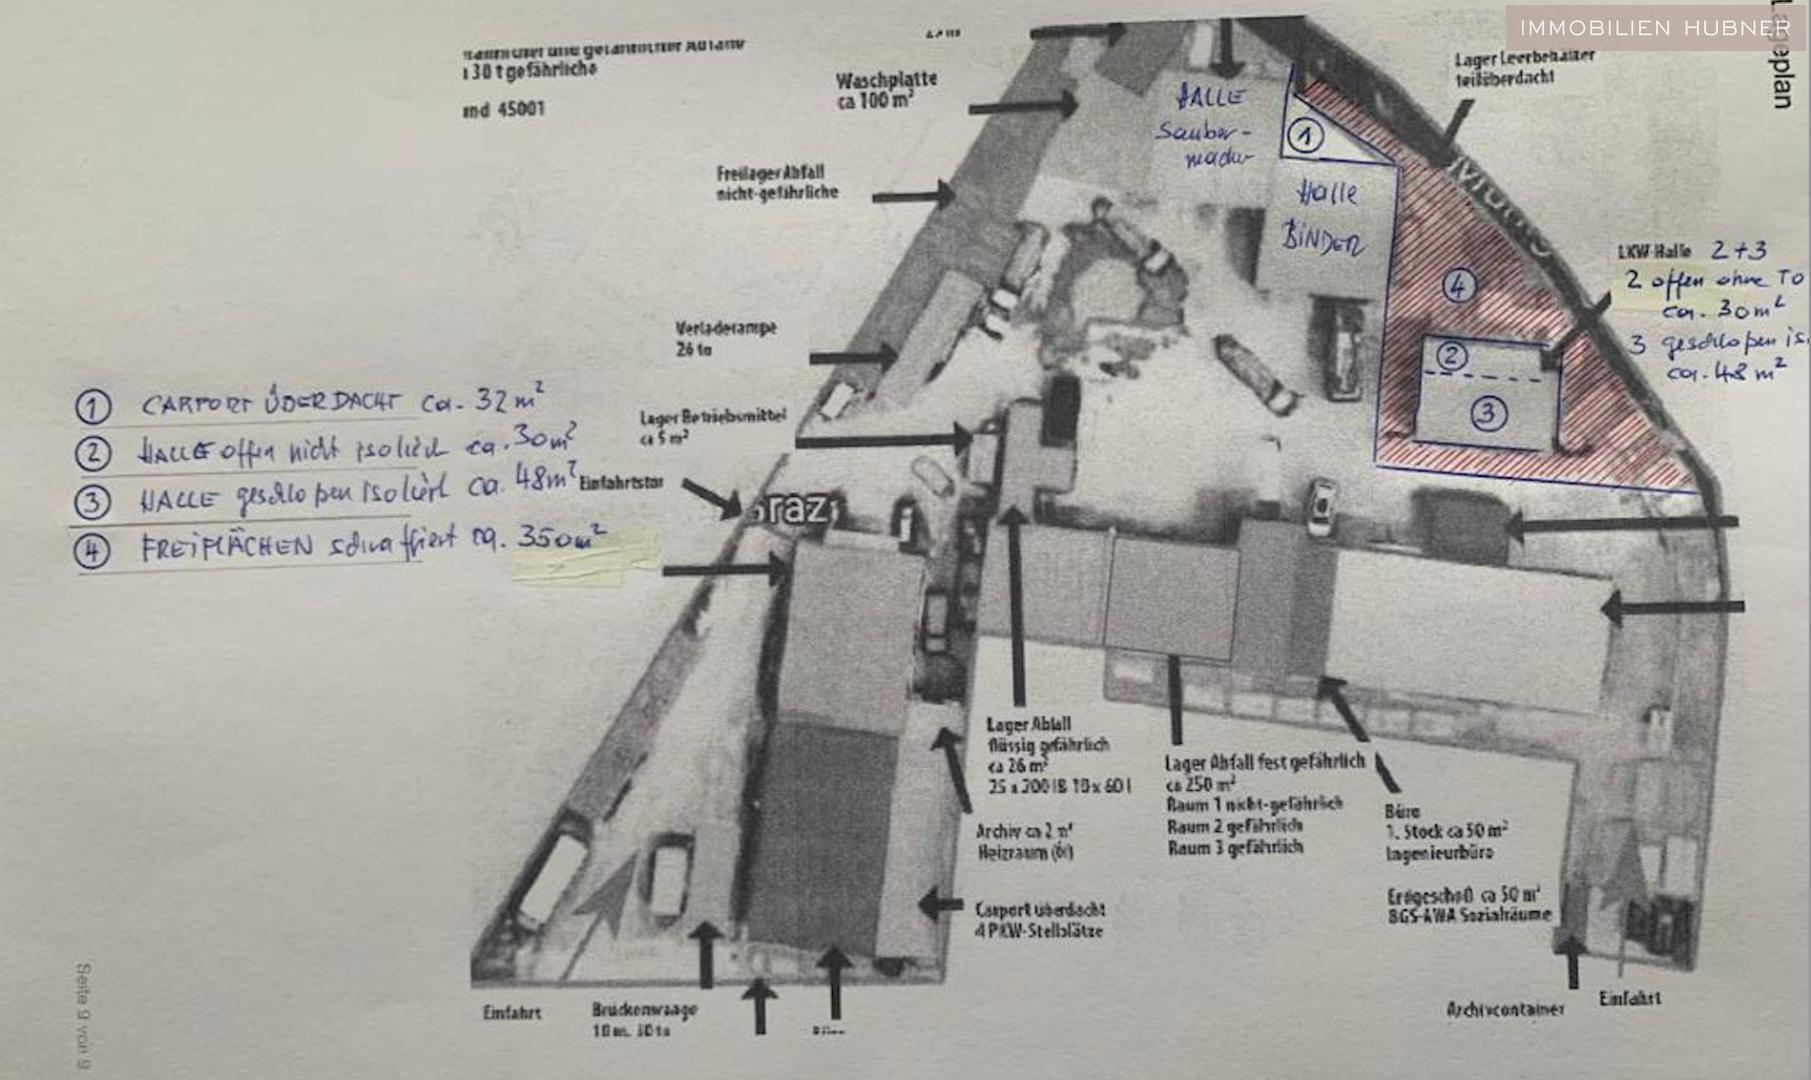 IMMOBILIEN HUBNER
Lageplan
130 t gefährliche
und 45001
Waschplatte
ca 100 m²
Freilager Abfall
nicht-gefährliche
Verladerampe
26 to
Lager Betriebsmittel
ca 5 m²
Einfahrtstor
Graz
Lager Leerbehälter
teilüberdacht
HALLE
Sauber-
macher
1
Halle
BINDER
4
2
3
LKW-Halle 2+3
2 offen ohne To
ca. 30m²
3 geschlossen is.
ca. 48 m²
1 CARPORT ÜBERDACHT ca. 32m²
2 HALLE offen nicht isoliert ca. 30m²
3 HALLE geschloßen isoliert ca. 48m²
4 FREIFLÄCHEN schraffiert ca. 350m²
Lager Abfall
flüssig gefährlich
ca 26 m²
25 x 200 l & 10 x 60 l
Archiv ca 2 m²
Heizraum (Öl)
Carport überdacht
4 PKW-Stellplätze
Lager Abfall fest gefährlich
ca 250 m²
Raum 1 nicht-gefährlich
Raum 2 gefährlich
Raum 3 gefährlich
Büro
1. Stock ca 50 m²
Ingenieurbüro
Erdgeschoß ca 50 m²
BGS-AWA Sozialräume
Einfahrt
Brückenwaage
18 m, 30 to
Büro
Archivcontainer
Einfahrt
Seite 9 von 9